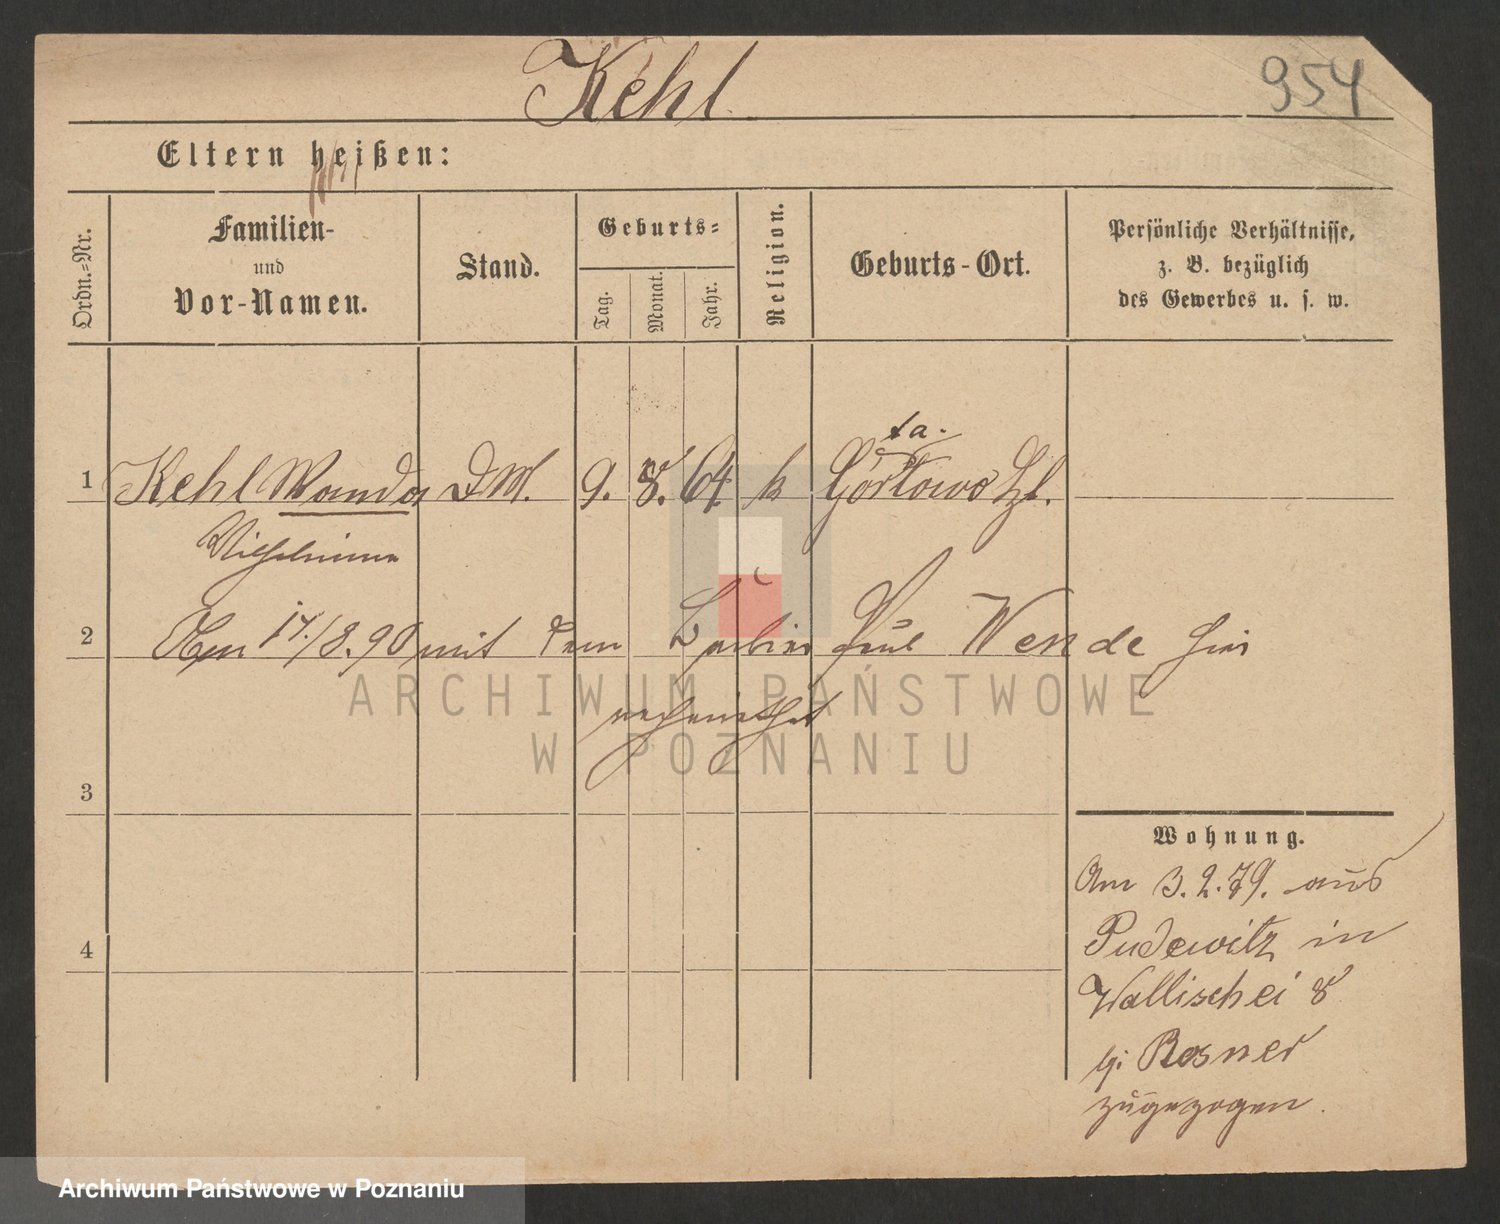 Kehl
954
Eltern heißen:
Ordn.=Nr.
Familien-
und
Vor-Namen.
Stand.
Geburts=
Tag.
Monat.
Jahr.
Religion.
Geburts-Ort.
Persönliche Verhältnisse,
z. B. bezüglich
des Gewerbes u. s. w.
ta.
1 Kehl Wanda DM. 9. 8. 64 k
Wilhelmine
2 Am 17./8.90 mit dem Barbier Paul Wende hier
verheirathet
3
4
Wohnung.
Am 3.2.79. aus
Pudewitz in
Wallischei 8
b. Rosner
zugezogen.
ARCHIWUM PAŃSTWOWE
W POZNANIU
Archiwum Państwowe w Poznaniu